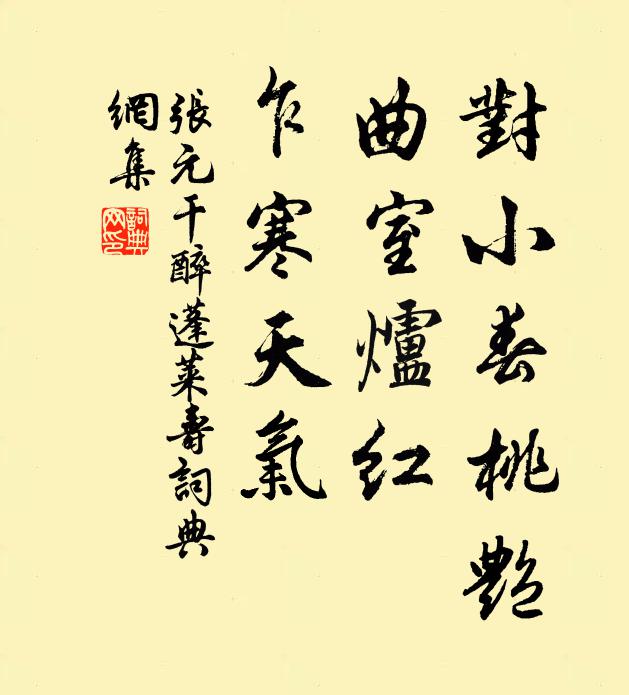 對小春桃艷
曲室爐紅
乍寒天氣
張元干醉蓬萊壽詞典
網集
詞典网印